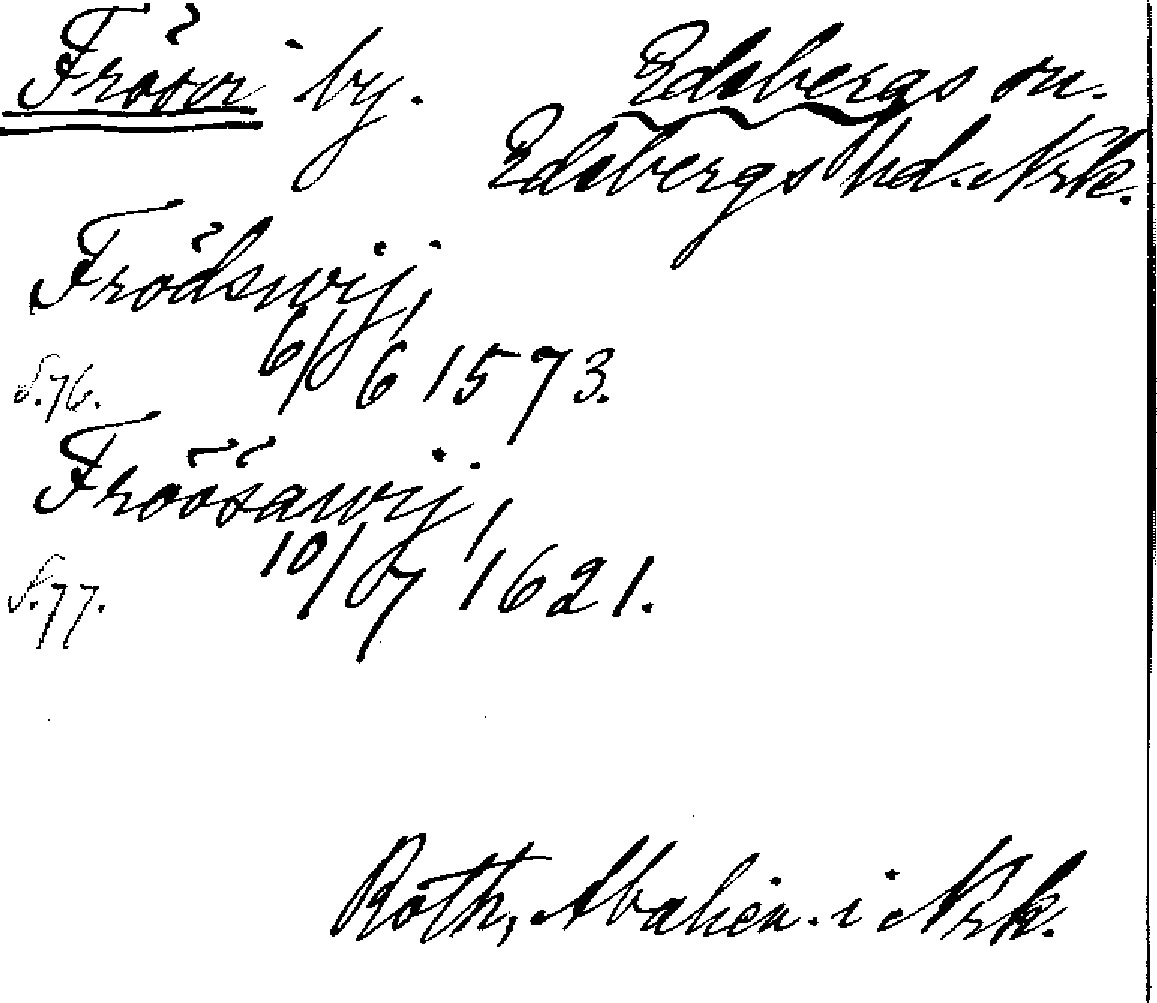 Frösvi by. Edsbergs sn.
Edsbergs hd. Nrk.
Frödswij,
6/6 1573.
S. 76.
Fröösawij,
10/7 1621.
S. 77.
Roth, Abalien. i Nrk.